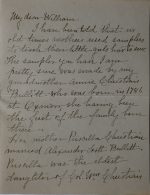 My dear William:
I have been told that in
old times mothers used samplers
to teach their little girls how to sew.
The sampler you have I am
pretty sure was made by my
grandmother Annie Christian
Bullitt who was born in 1786
at Oxmoor, she having been
the first of the family born
there.
Her mother Priscilla Christian
married Alexander Scott Bullitt.
Priscilla was the eldest
daughter of Col. Wm Christian